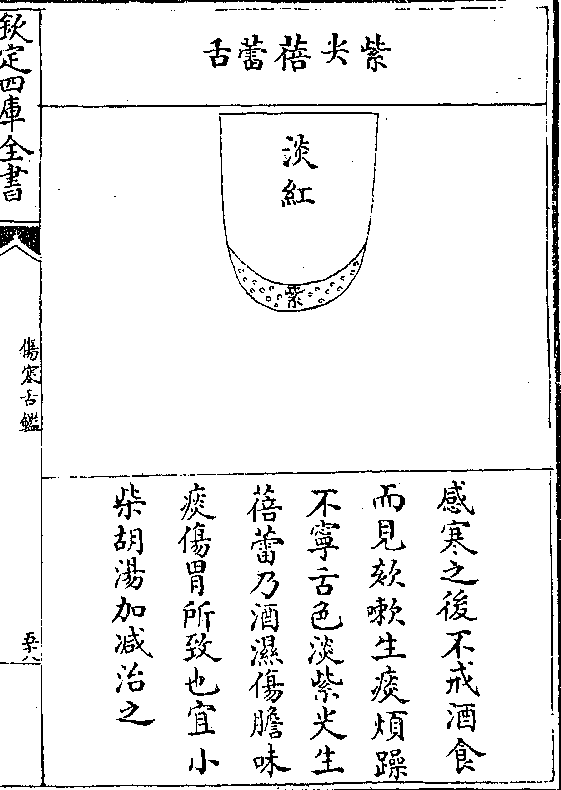 紫尖蓓蕾舌
淡紅
紫
感寒之後不戒酒食
而見欬嗽生痰煩躁
不寧舌色淡紫尖生
蓓蕾乃酒濕傷膽味
痰傷胃所致也宜小
柴胡湯加減治之
欽定四庫全書
傷寒舌鑑
五十八